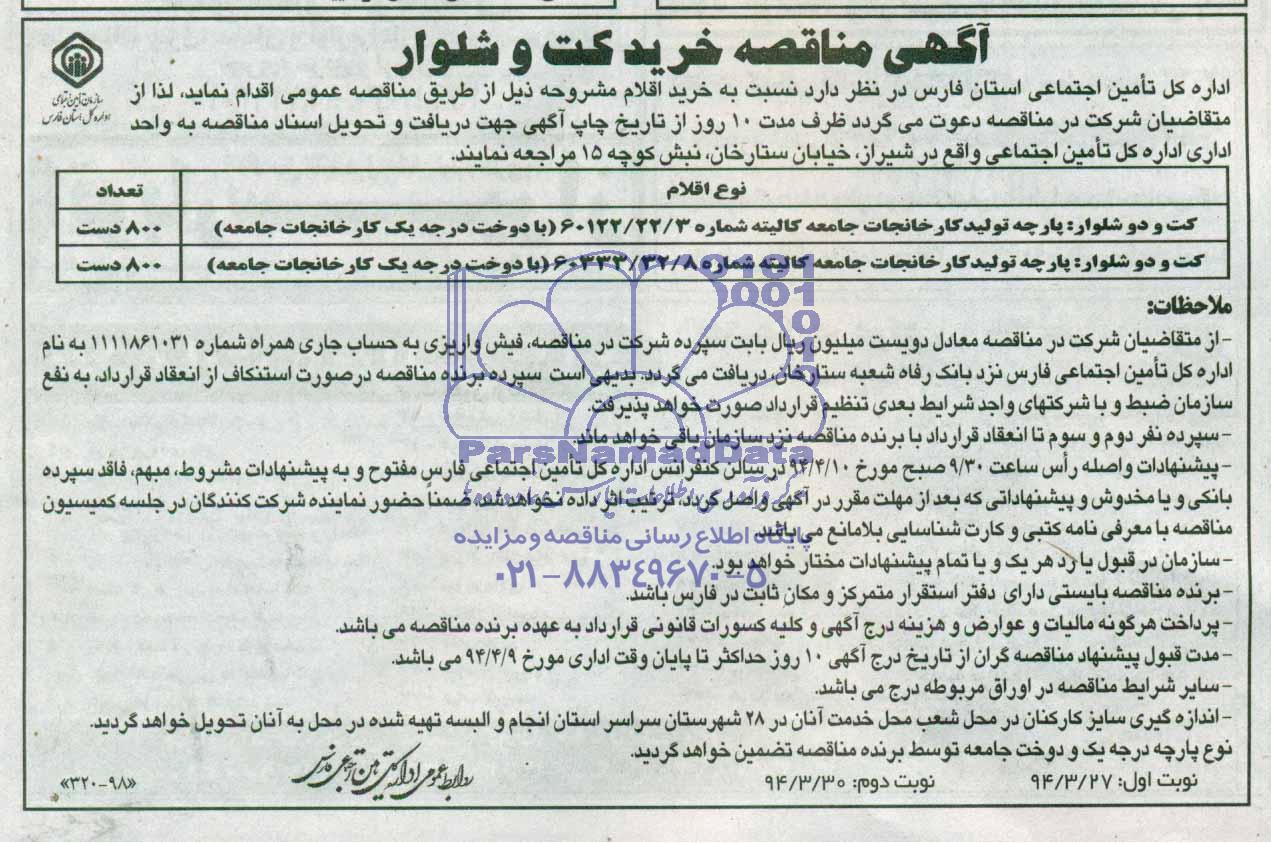 آگهی مناقصه خرید کت و شلوار
سازمان تأمین اجتماعی
اداره کل استان فارس
اداره کل تأمین اجتماعی استان فارس در نظر دارد نسبت به خرید اقلام مشروحه ذیل از طریق مناقصه عمومی اقدام نماید، لذا از
متقاضیان شرکت در مناقصه دعوت می گردد ظرف مدت ۱۰ روز از تاریخ چاپ آگهی جهت دریافت و تحویل اسناد مناقصه به واحد
اداری اداره کل تأمین اجتماعی واقع در شیراز، خیابان ستارخان، نبش کوچه ۱۵ مراجعه نمایند.
نوع اقلام تعداد
کت و دو شلوار: پارچه تولید کارخانجات جامعه کالیته شماره ۶۰۱۲۲/۲۲/۳ (با دوخت درجه یک کارخانجات جامعه) ۸۰۰ دست
کت و دو شلوار: پارچه تولید کارخانجات جامعه کالیته شماره ۶۰۳۳۳/۳۲/۸ (با دوخت درجه یک کارخانجات جامعه) ۸۰۰ دست
ملاحظات:
-از متقاضیان شرکت در مناقصه معادل دویست میلیون ریال بابت سپرده شرکت در مناقصه، فیش واریزی به حساب جاری همراه شماره ۱۱۱۱۸۶۱۰۳۱ به نام
اداره کل تأمین اجتماعی فارس نزد بانک رفاه شعبه ستارخان، دریافت می گردد. بدیهی است سپرده برنده مناقصه درصورت استنکاف از انعقاد قرارداد، به نفع
سازمان ضبط و با شرکتهای واجد شرایط بعدی تنظیم قرارداد صورت خواهد پذیرفت.
-سپرده نفر دوم و سوم تا انعقاد قرارداد با برنده مناقصه نزد سازمان باقی خواهد ماند.
-پیشنهادات واصله رأس ساعت ۹/۳۰ صبح مورخ ۹۴/۴/۱۰ در سالن کنفرانس اداره کل تأمین اجتماعی فارس مفتوح و به پیشنهادات مشروط، مبهم، فاقد سپرده
بانکی و یا مخدوش و پیشنهاداتی که بعد از مهلت مقرر در آگهی واصل گردد، ترتیب اثر داده نخواهد شد، ضمناً حضور نماینده شرکت کنندگان در جلسه کمیسیون
مناقصه با معرفی نامه کتبی و کارت شناسایی بلامانع می باشد.
-سازمان در قبول یا رد هر یک و یا تمام پیشنهادات مختار خواهد بود.
-برنده مناقصه بایستی دارای دفتر استقرار متمرکز و مکان ثابت در فارس باشد.
-پرداخت هرگونه مالیات و عوارض و هزینه درج آگهی و کلیه کسورات قانونی قرارداد به عهده برنده مناقصه می باشد.
-مدت قبول پیشنهاد مناقصه گران از تاریخ درج آگهی ۱۰ روز حداکثر تا پایان وقت اداری مورخ ۹۴/۴/۹ می باشد.
-سایر شرایط مناقصه در اوراق مربوطه درج می باشد.
-اندازه گیری سایز کارکنان در محل شعب محل خدمت آنان در ۲۸ شهرستان سراسر استان انجام و البسه تهیه شده در محل به آنان تحویل خواهد گردید.
نوع پارچه درجه یک و دوخت جامعه توسط برنده مناقصه تضمین خواهد گردید.
نوبت اول: ۹۴/۳/۲۷ نوبت دوم: ۹۴/۳/۳۰
روابط عمومی اداره کل تأمین اجتماعی فارس
«۳۲۰-۹۸»
ParsNamadData
پایگاه اطلاع رسانی مناقصه و مزایده
۰۲۱-۸۸۳۴۹۶۷۰-۵